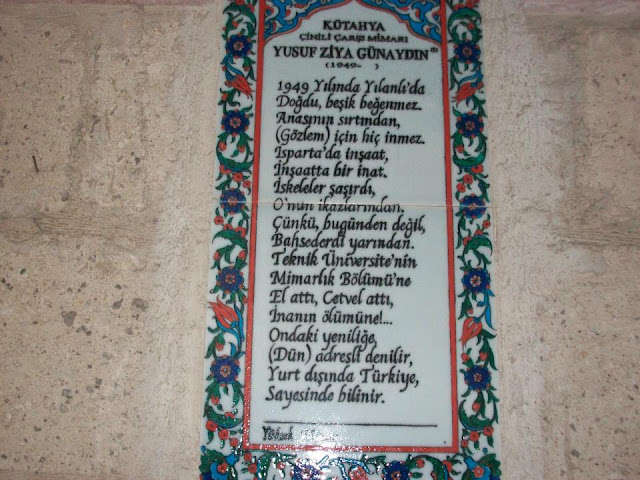 KÜTAHYA
ÇİNİLİ ÇARŞI MİMARI
YUSUF ZİYA GÜNAYDIN
(1949- )
1949 Yılında Yılanlı'da
Doğdu, beşik beğenmez.
Anasının sırtından,
(Gözlem) için hiç inmez.
Isparta'da inşaat,
İnşaatta bir inat.
İskeleler şaşırdı,
O'nun ikazlarından.
Çünkü, bugünden değil,
Bahsederdi yarından.
Teknik Üniversite'nin
Mimarlık Bölümü'ne
El attı, Cetvel attı,
İnanın ölümüne!...
Ondaki yeniliğe,
(Dün) adresli denilir,
Yurt dışında Türkiye,
Sayesinde bilinir.